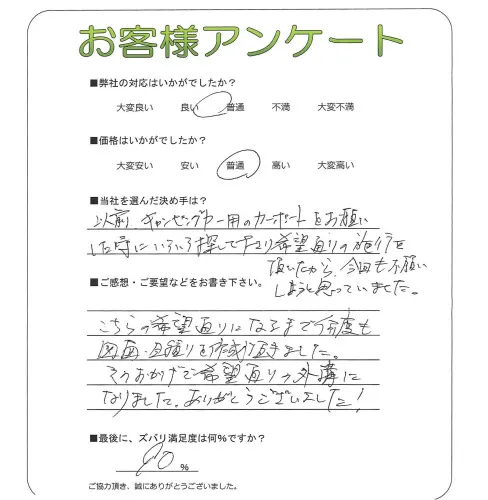 お客様アンケート
■弊社の対応はいかがでしたか？
大変良い 良い 普通 不満 大変不満
■価格はいかがでしたか？
大変安い 安い 普通 高い 大変高い
■当社を選んだ決め手は？
以前、キャンピングカー用のカーポートをお願い
した時にいろいろ探して下さり希望通りの施行を
頂いたから、今回もお願い
しようと思っていました。
■ご感想・ご要望などをお書き下さい。
こちらの希望通りになるまで何度も
図面・見積りを作成頂きました。
そのおかげで希望通りの外構に
なりました。ありがとうございました！
■最後に、ズバリ満足度は何％ですか？
90 %
ご協力頂き、誠にありがとうございました。